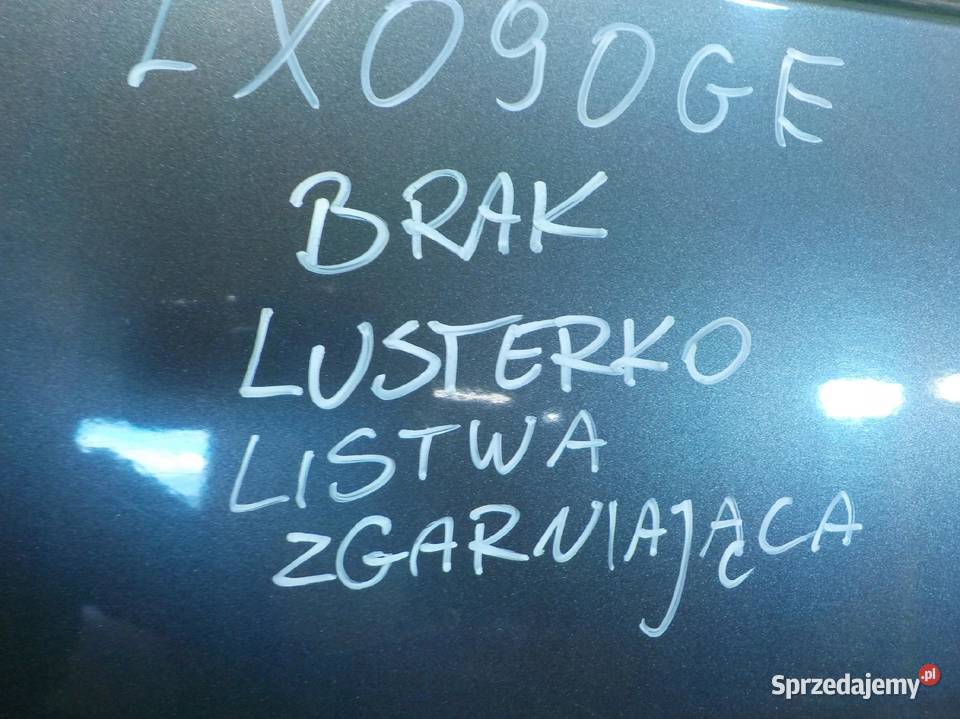 LX090GE
BRAK
LUSTERKO
LISTWA
ZGARNIAJĄCA
Sprzedajemy.pl